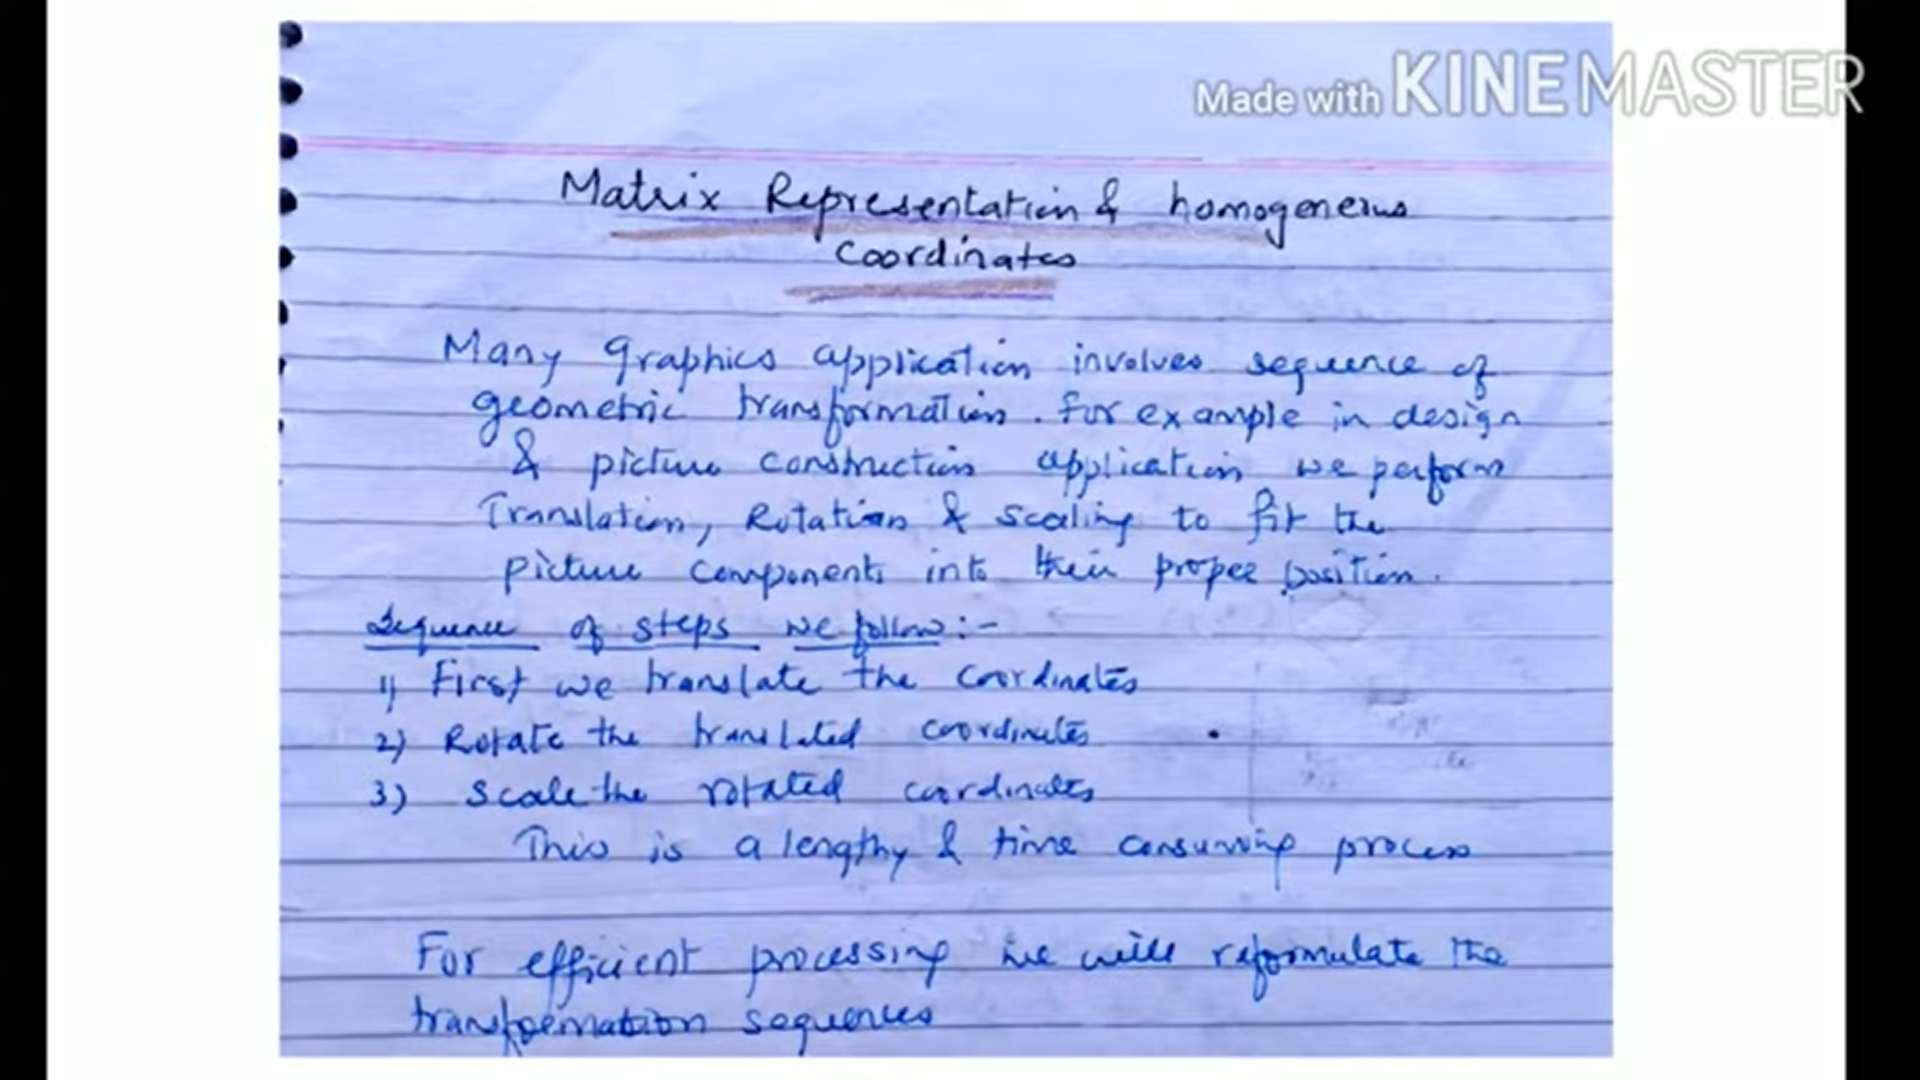 Made with KINEMASTER
Matrix Representation & homogeneous
Coordinates
Many graphics application involves sequence of
geometric transformation. For example in design
& picture construction application we perform
Translation, Rotation & Scaling to fit the
picture components into their proper position.
Sequence of steps we follow:-
1) First we translate the coordinates
2) Rotate the translated coordinates
3) Scale the rotated coordinates
This is a lengthy & time consuming process
For efficient processing we will reformulate the
transformation sequences